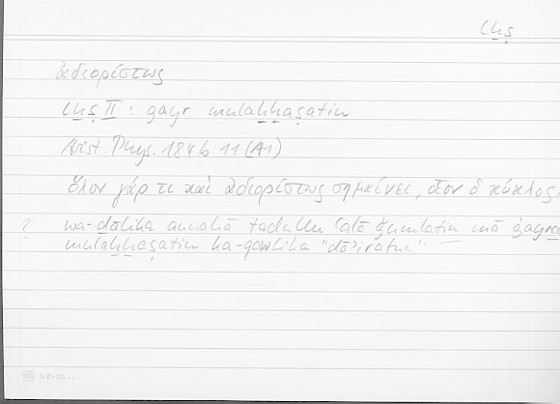 lḫṣ
ἀδιορίστως
lḫṣ II : ġayr mulaḫḫaṣatin
Arist. Phys. 184b 11 (A1)
ὅλον γάρ τι καὶ ἀδιορίστως σημαίνει, οἷον ὁ κύκλος,
? wa-ḏālika annahā tadullu ʿalā ǧumlatin mā ġayra
mulaḫḫaṣatin ka-qawlika "dāʾiratun" —